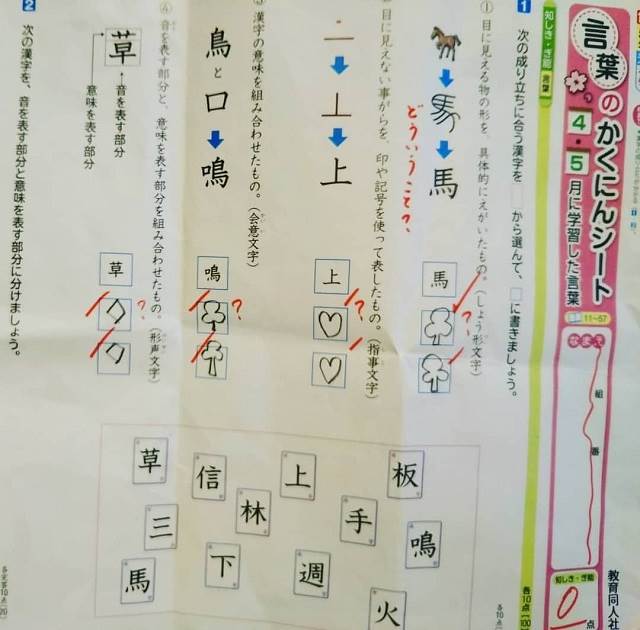 言葉のかくにんシート
4・5月に学習した言葉
11~57
なまえ
組
番
知しき・ぎ能
0点
教育同人社
知しき・ぎ能 言葉
1 次の成り立ちに合う漢字を から選んで、□に書きましょう。
各10点〔100〕
① 目に見える物の形を、具体的にえがいたもの。（しょう形文字）
馬
馬
どういうこと?
② 目に見えない事がらを、印や記号を使って表したもの。（指事文字）
上
上
?
③ 漢字の意味を組み合わせたもの。（会意文字）
鳥と口
鳴
鳴
?
④ 音を表す部分と、意味を表す部分を組み合わせたもの。（形声文字）
草
音を表す部分
意味を表す部分
草
?
板
鳴
火
上
手
週
信
林
下
草
三
馬
2 次の漢字を、音を表す部分と意味を表す部分に分けましょう。